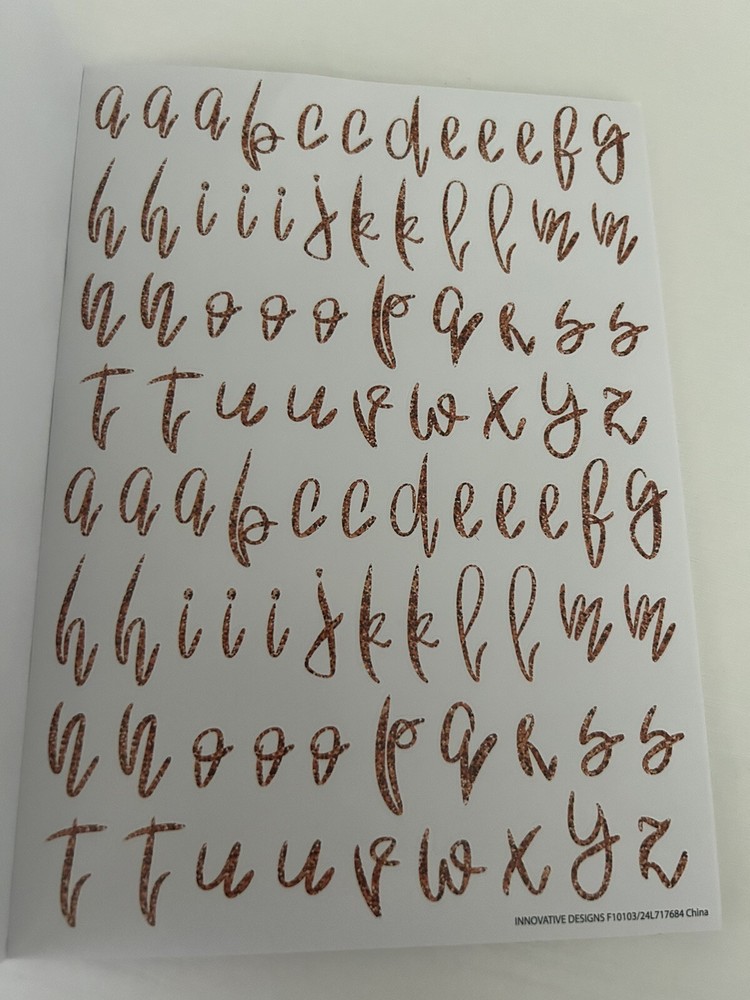 a a a b c c d e e e f g
h h i i i j k k l l m m
n n o o o p q r s s
t t u u v w x y z
a a a b c c d e e e f g
h h i i i j k k l l m m
n n o o o p q r s s
t t u u v w x y z
INNOVATIVE DESIGNS F10103/24L717684 China